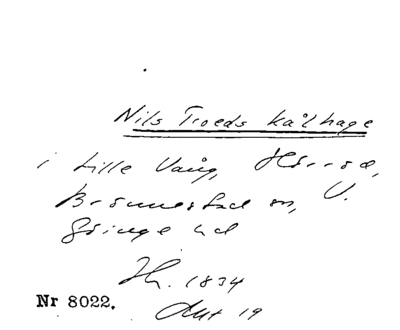 Nils Troeds kålhage
i Lille Vång, Hörröd,
Brönnestad sn, V.
Göinge hd
Jh. 1834
Nr 8022. Akt 19